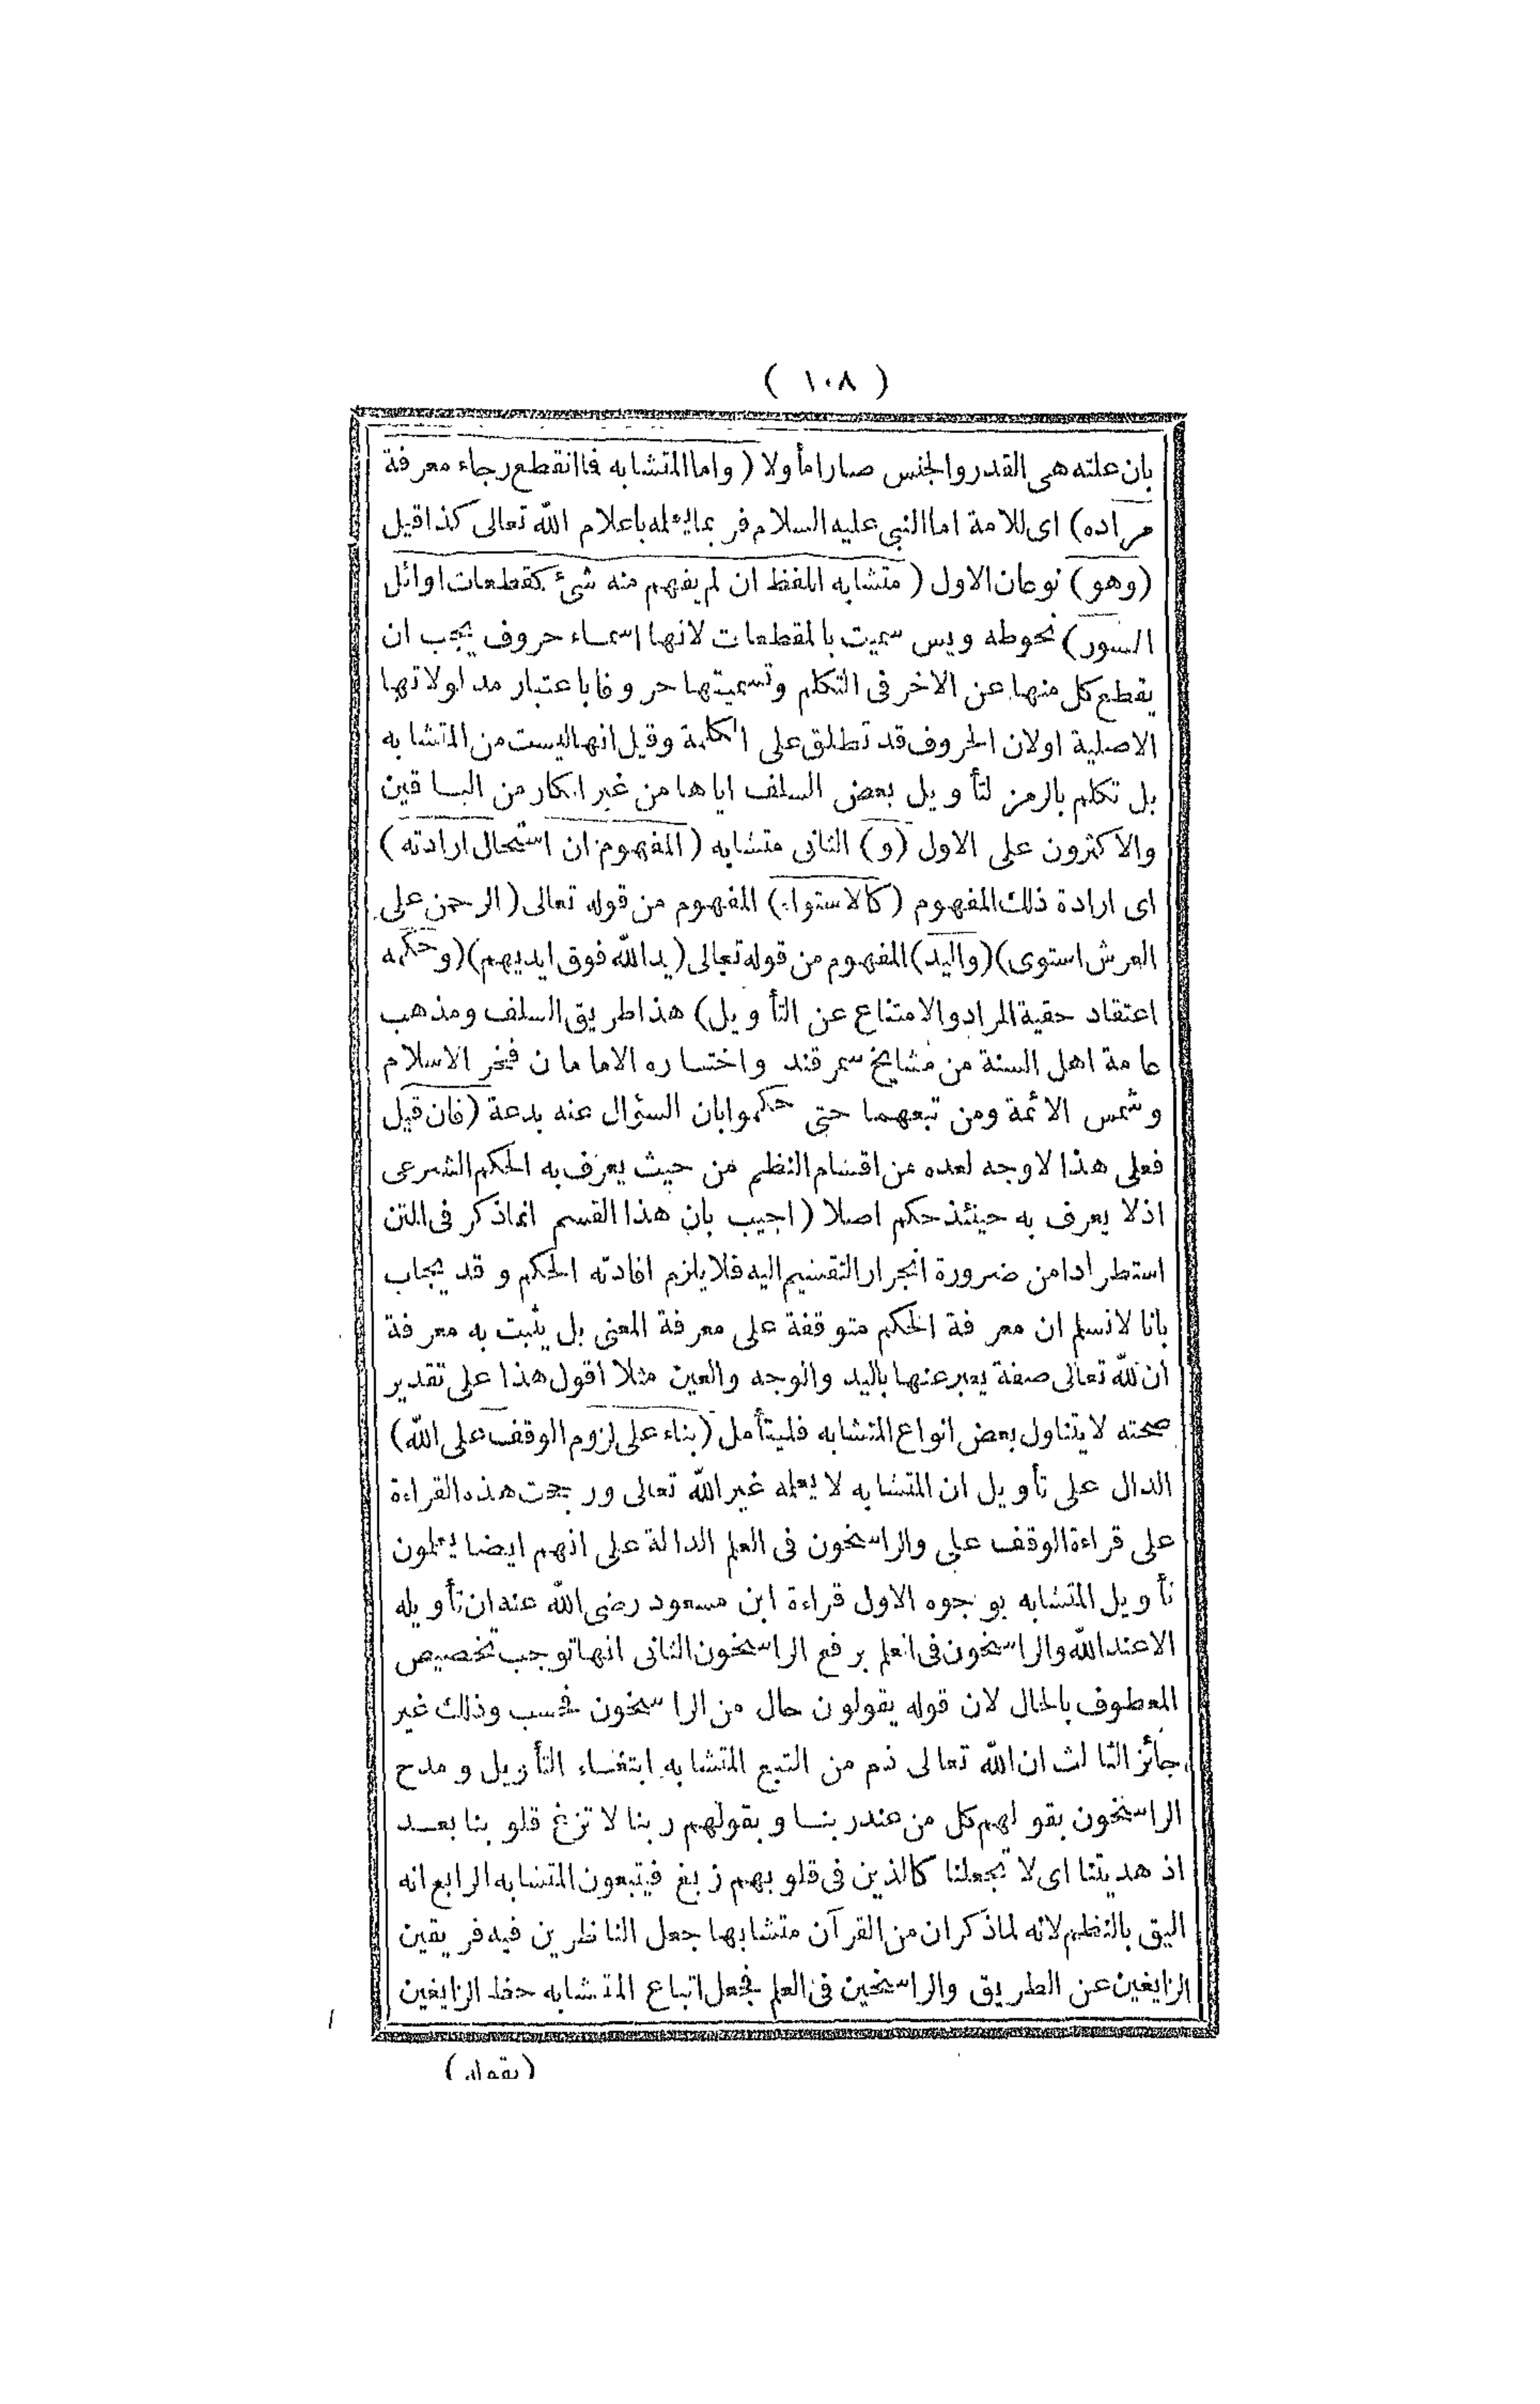 ( ١٠٨ )
بان علته هى القدر والجنس صار امأولا ( واما المتشابه فاانقطع رجاء معرفة
مراده ) اى للامة اما النبى عليه السلام فربما يعلمه باعلام الله تعالى كذا قيل
(وهو) نوعان الاول ( متشابه اللفظ ان لم يفهم منه شئ كقطعات اوائل
السور ) نحو طه ويس سميت بالمقطعات لانها اسماء حروف يجب ان
يقطع كل منها عن الاخر فى التكلم وتسميتها حروفا باعتبار مدلولاتها
الاصلية اولان الحروف قد تطلق على الكلمة وقيل انها ليست من المتشابه
بل تكلم بالرمز لتأويل بعض السلف اياها من غير انكار من الباقين
والاكثرون على الاول (و) الثانى متشابه ( المفهوم ان استحال ارادته )
اى ارادة ذلك المفهوم ( كالاستواء ) المفهوم من قوله تعالى ( الرحمن على
العرش استوى ) ( واليد ) المفهوم من قوله تعالى ( يد الله فوق ايديهم ) ( وحكمه
اعتقاد حقية المراد والامتناع عن التأويل ) هذا طريق السلف ومذهب
عامة اهل السنة من مشايخ سمرقند واختاره الامامان فخر الاسلام
وشمس الائمة ومن تبعهما حتى حكموا بان السؤال عنه بدعة ( فان قيل
فعلى هذا لاوجه لعده من اقسام النظم من حيث يعرف به الحكم الشرعى
اذلا يعرف به حينئذ حكم اصلا ( اجيب بان هذا القسم انما ذكر فى المتن
استطرادا من ضرورة انجرار التقسيم اليه فلا يلزم افادته الحكم وقد يجاب
بانا لانسلم ان معرفة الحكم متوقفة على معرفة المعنى بل يثبت به معرفة
ان لله تعالى صفة يعبر عنها باليد والوجه والعين مثلا اقول هذا على تقدير
صحته لا يتناول بعض انواع المتشابه فليتأمل ( بناء على لزوم الوقف على الله )
الدال على تأويل ان المتشابه لا يعلمه غير الله تعالى ورجحت هذه القراءة
على قراءة الوقف على والراسخون فى العلم الدالة على انهم ايضا يعلمون
تأويل المتشابه بوجوه الاول قراءة ابن مسعود رضى الله عنه ان تأويله
الا عند الله والراسخون فى العلم برفع الراسخون الثانى انها توجب تخصيص
المعطوف بالحال لان قوله يقولون حال من الراسخون فحسب وذلك غير
جائز الثالث ان الله تعالى ذم من التبع المتشابه ابتغاء التأويل ومدح
الراسخون بقولهم كل من عند ربنا وبقولهم ربنا لا تزغ قلوبنا بعد
اذ هديتنا اى لا تجعلنا كالذين فى قلوبهم زيغ فيتبعون المتشابه الرابع انه
اليق بالنظم لانه لما ذكر ان من القرآن متشابها جعل الناظرين فيه فريقين
الزايغين عن الطريق والراسخين فى العلم فجعل اتباع المتشابه حظ الزايغين
( بقوله )